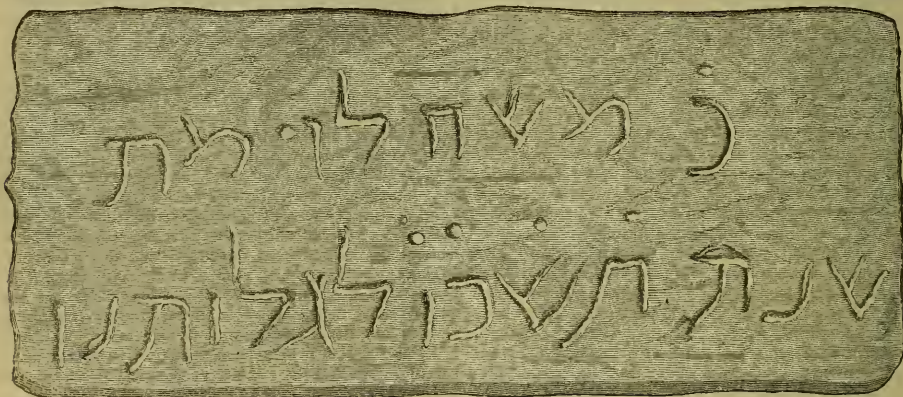 ר׳ משה לוי מת
שנת תשכו לגלותנו